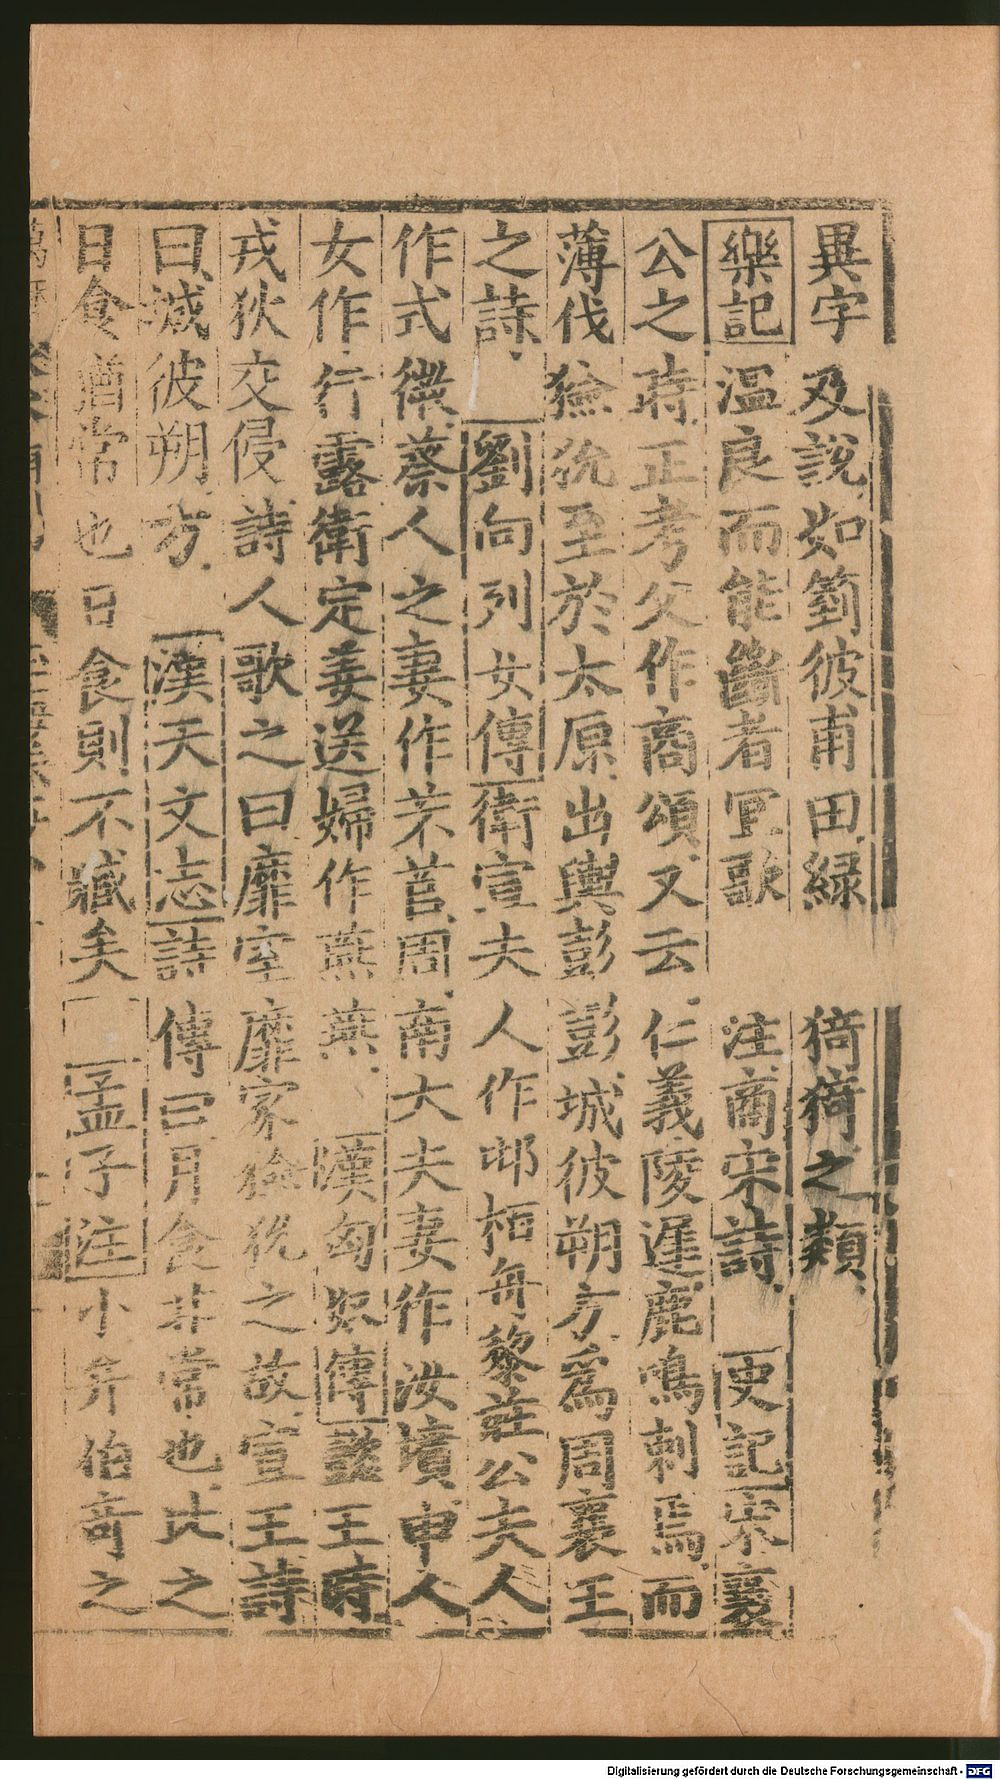 異字及說如䈞彼甫田緑 猗猗之類
樂記温良而能斷者宜歌 注商宋詩 史記宋襄
公之時正考父作商頌又云仁義陵遲鹿鳴刺焉而
薄伐獫狁至於太原出輿彭彭城彼朔方爲周襄王
之詩 劉向列女傳衛宣夫人作邶栢舟黎莊公夫人
作式微蔡人之妻作芣苢周南大夫妻作汝墳申人
女作行露衛定姜送婦作燕燕 漢匈奴傳懿王時
戎狄交侵詩人歌之曰靡室靡家獫狁之故宣王詩
曰城彼朔方 漢天文志詩傳曰月食非常也比之
日食猶常也日食則不臧矣 孟子注小弁伯奇之
Digitalisierung gefördert durch die Deutsche Forschungsgemeinschaft - DFG